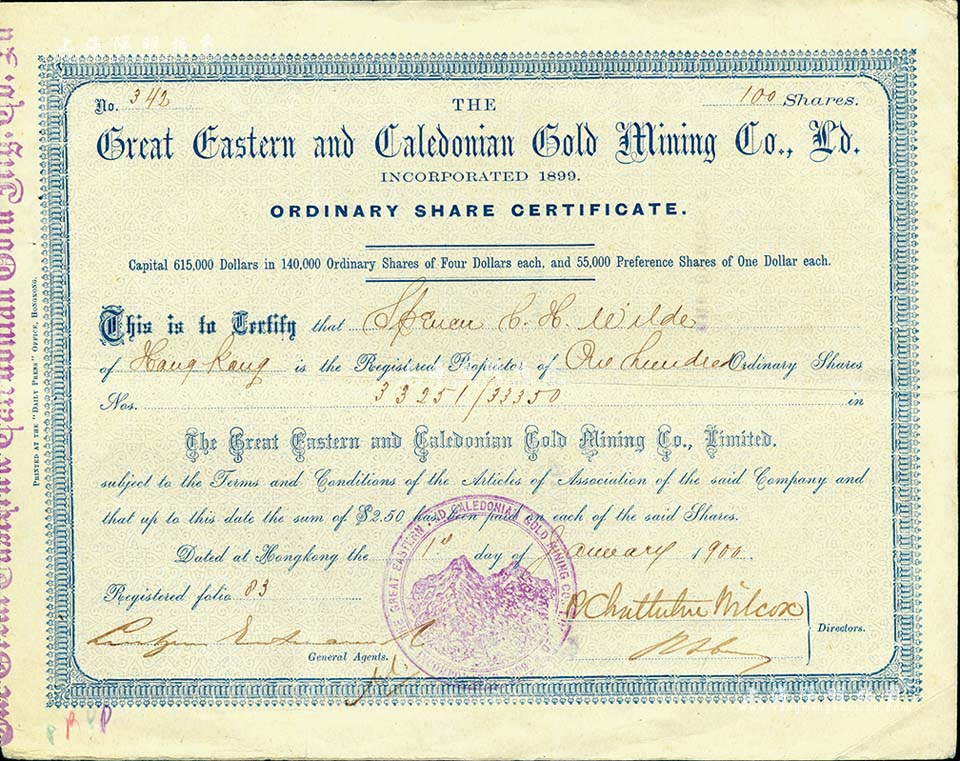 No. 342
100 Shares.
THE
Great Eastern and Caledonian Gold Mining Co., Ld.
INCORPORATED 1899.
ORDINARY SHARE CERTIFICATE.
Capital 615,000 Dollars in 140,000 Ordinary Shares of Four Dollars each, and 55,000 Preference Shares of One Dollar each.
This is to Certify that C. H. Wilde
of Hong Kong is the Registered Proprietor of One hundred Ordinary Shares
Nos. 33251/33350 in
The Great Eastern and Caledonian Gold Mining Co., Limited.
subject to the Terms and Conditions of the Articles of Association of the said Company and
that up to this date the sum of $2.50 has been paid on each of the said Shares.
Dated at Hongkong the day of January 1900
Registered folio 83
Wilcox
Directors.
General Agents.
GREAT EASTERN AND CALEDONIAN GOLD MINING CO.
PRINTED AT THE "DAILY PRESS" OFFICE, HONGKONG.